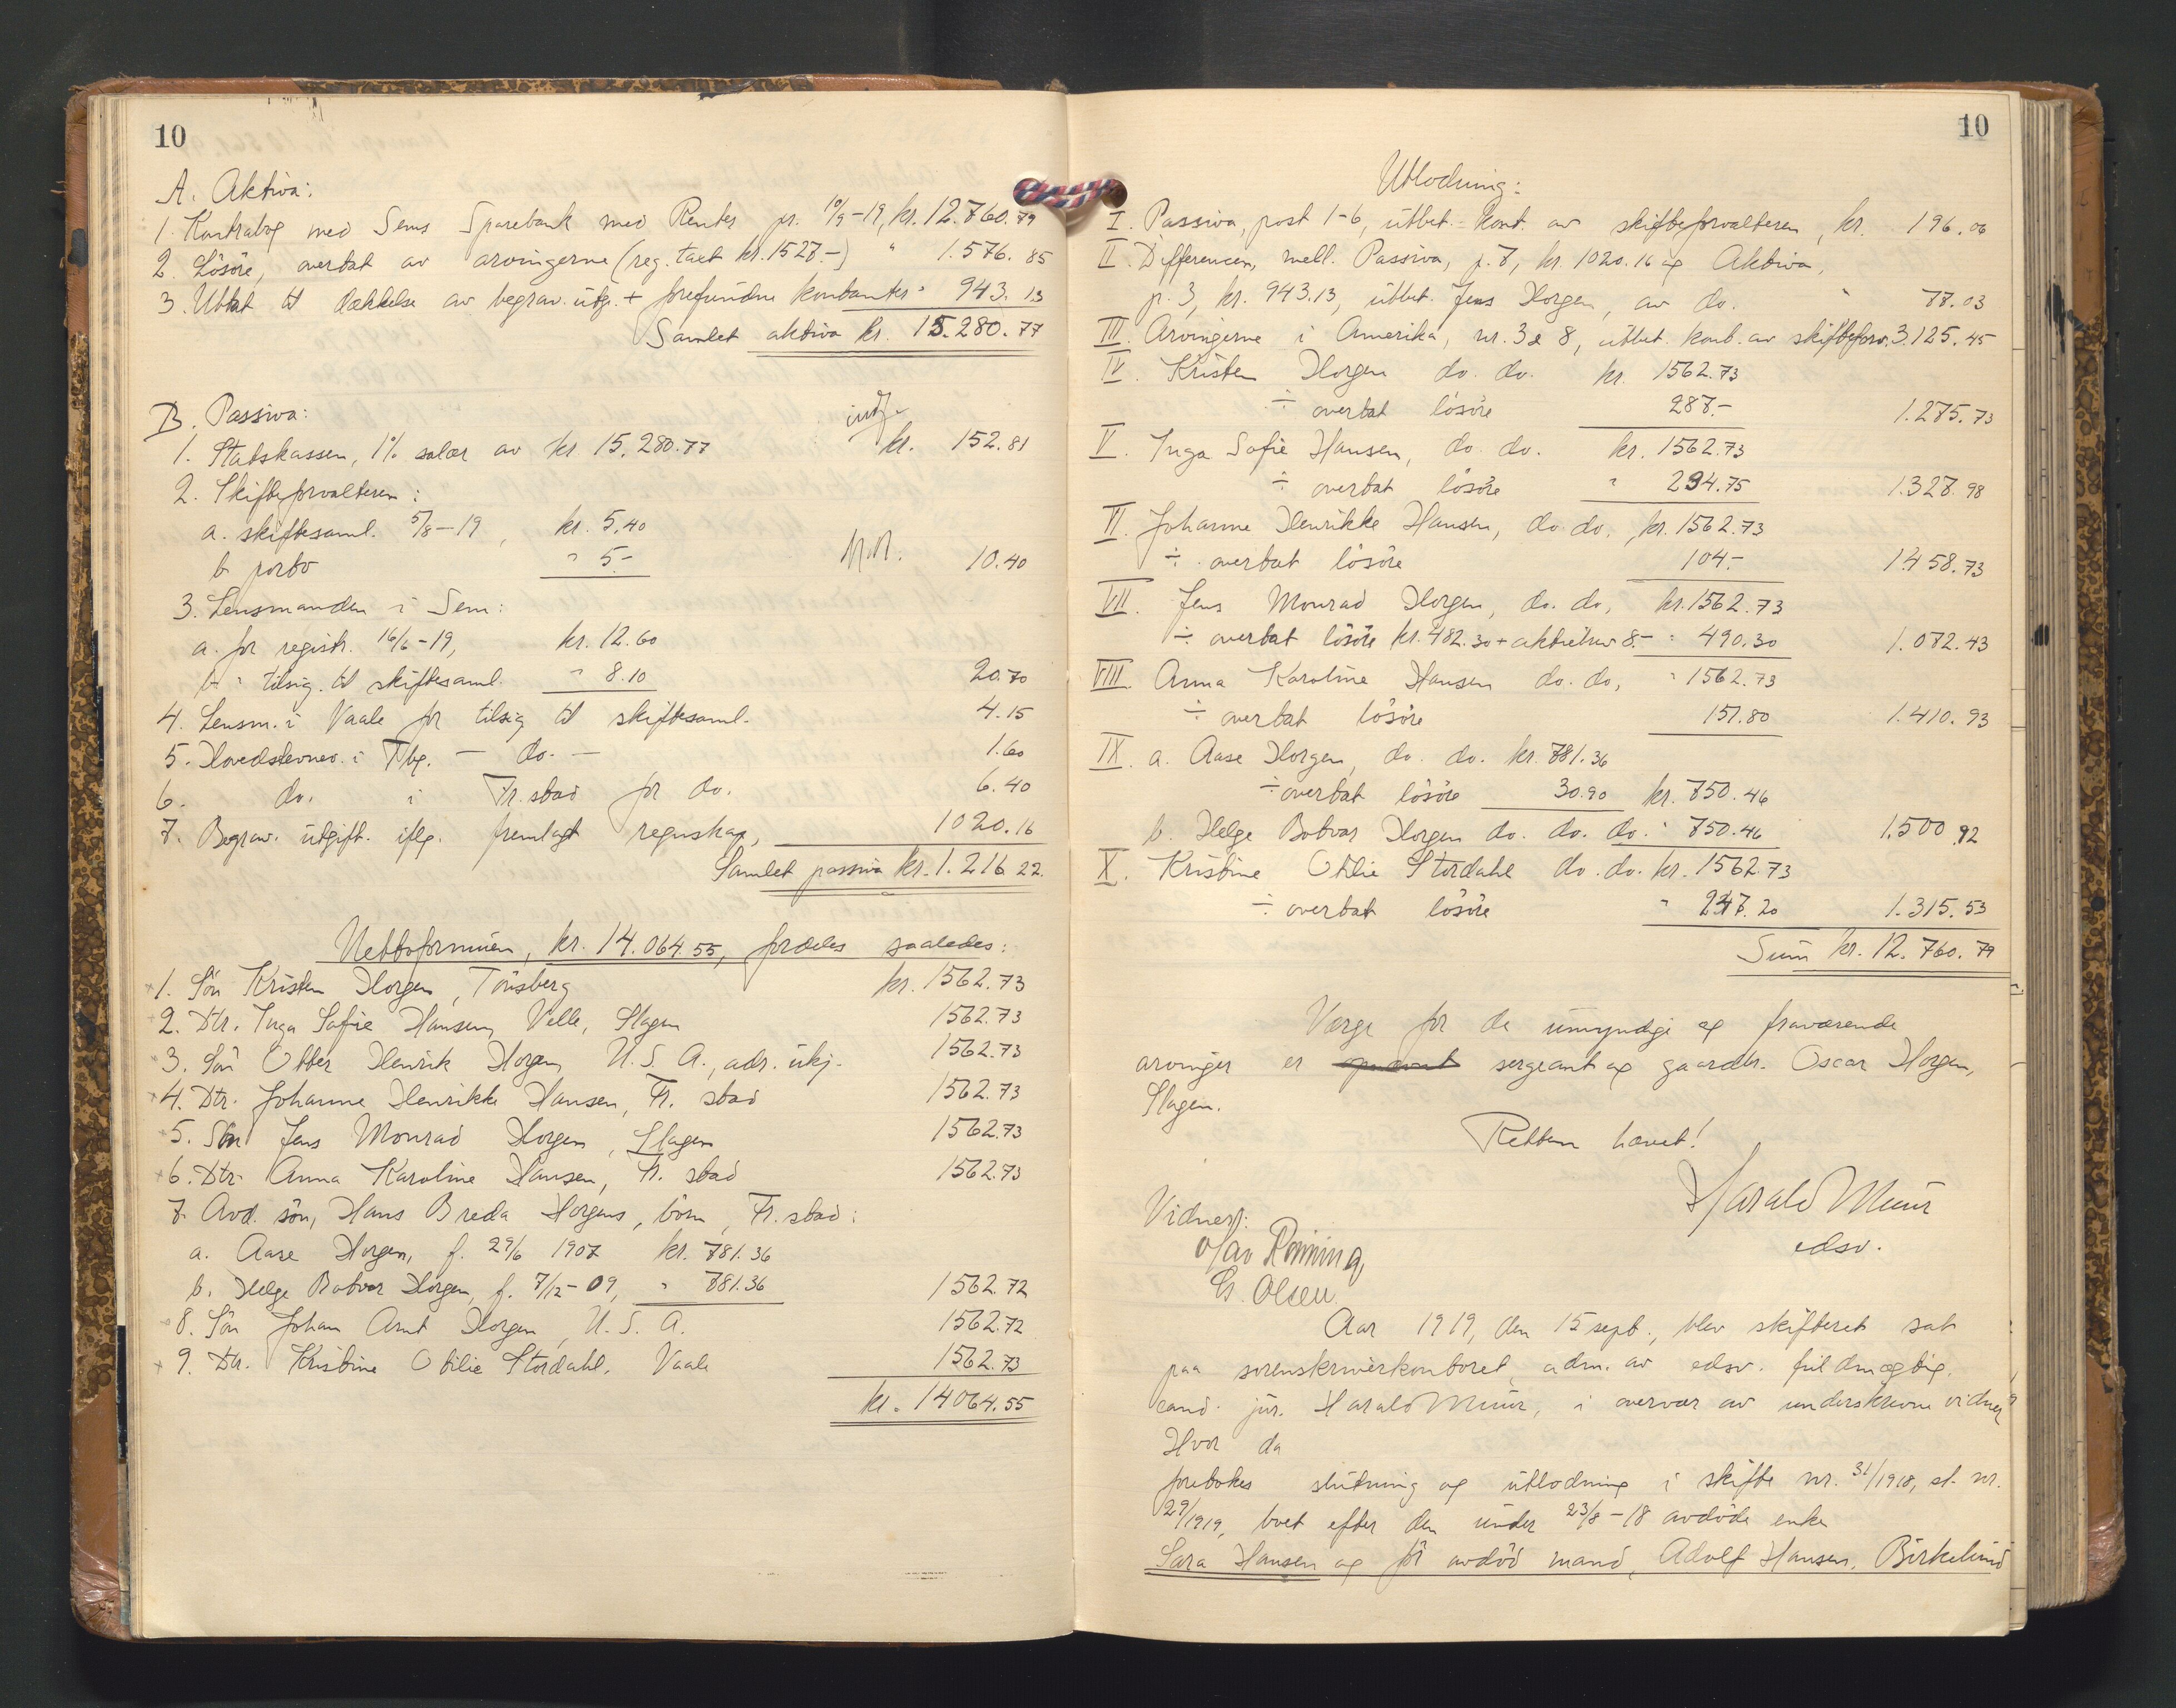 10
A. Aktiva:
1. Kontrabog med Sems Sparebank med Renter pr. 10/9-19, kr. 12.760.79
2. Lösöre, overtat av arvingerne (reg. taxt kr. 1527.-) " 1.576.85
3. Uttat til dækkelse av begrav. utg. + forefundne kontanter " 943.13
Samlet aktiva kr. 15.280.77
B. Passiva:
1. Statskassen, 1% salær av kr 15.280.77 kr. 152.81
2. Skifteforvalteren:
a. skiftesaml. 5/8-19, kr. 5.40
b. porto " 5.- 10.40
3. Lensmanden i Sem:
a. for registr. 16/6-19, kr. 12.60
b. " tilsig. til skiftesaml. " 8.10 20.70
4. Lensm. i Vaale for tilsig til skiftesaml. 4.15
5. Hovedstevnev. i Tbg. — do. — 1.60
6. do. i Fr.stad for do. 6.40
7. Begrav. utgift. iflg. fremlagt regnskap, 1020.16
Samlet passiva kr. 1.216.22.
Nettoformuen, kr. 14.064.55, fordeles saaledes:
1. Sön Kristen Horgen, Tönsberg kr. 1562.73
2. Dtr. Inga Sofie Hansen, Velle, Slagen 1562.73
3. Sön Otter Henrik Horgen, U.S.A., adr. ukj. 1562.73
4. Dtr. Johanne Henrikke Hansen, Fr. stad 1562.73
5. Sön Jens Monrad Horgen, Slagen 1562.73
6. Dtr. Anna Karoline Hansen, Fr. stad 1562.73
7. Avd. sön, Hans Breda Horgens, börn, Fr. stad:
a. Aase Horgen, f. 29/6 1907 kr. 781.36
b. Helge Botvar Horgen, f. 7/12-09, " 781.36 1562.72
8. Sön Johan Arnt Horgen, U.S.A. 1562.72
9. Dtr. Kristine Otilie Stordahl. Vaale 1562.73
kr. 14064.55
10
Utlodning:
I. Passiva, post 1-6, utbet. kont. av skifteforvalteren, kr. 196.06
II. Differencen, mell. Passiva, p. 7, kr. 1020.16 og Aktiva,
p. 3, kr. 943.13, utbet. Jens Horgen, av do. " 77.03
III. Arvingerne i Amerika, nr. 3 & 8, utbet. kont. av skifteforv. 3.125.45
IV. Kristen Horgen do. do. kr. 1562.73
÷ overtat lösöre 287.- 1.275.73
V. Inga Sofie Hansen, do. do. kr. 1562.73
÷ overtat lösöre " 234.75 1.327.98
VI. Johanne Henrikke Hansen, do. do. kr. 1562.73
÷ overtat lösöre 104.- 1458.73
VII. Jens Monrad Horgen, do. do, kr. 1562.73
÷ overtat lösöre kr. 482.30 + aktiebrev 8.- " 490.30 1.072.43
VIII. Anna Karoline Hansen do. do, " 1562.73
÷ overtat lösöre 151.80 1.410.93
IX. a. Aase Horgen, do. do. kr. 781.36
÷ overtat lösöre 30.90 kr. 750.46
b. Helge Botvar Horgen do. do. do. " 750.46 1.500.92
X. Kristine Otilie Stordahl do. do. kr. 1562.73
÷ overtat lösöre " 247.20 1.315.53
Sum kr. 12.760.79
Værge for de umyndige og fraværende
arvinger er sergeant og gaardbr. Oscar Horgen,
Slagen.
Retten hævet!
Harald Muur
edsv.
Vidner:
Olav Rönning
G. Olsen
Aar 1919, den 15 sept., blev skifteret sat
paa sorenskriverkontoret, adm. av edsv. fuldmægtig,
cand. jur. Harald Muur, i overvær av underskrevne vidner
Hvor da
foretokes slutning og utlodning i skifte nr. 31/1918, sl. nr.
29/1919, boet efter den under 23/8-18 avdöde enke
Sara Hansen og för avdöd mand, Adolf Hansen, Birkelund